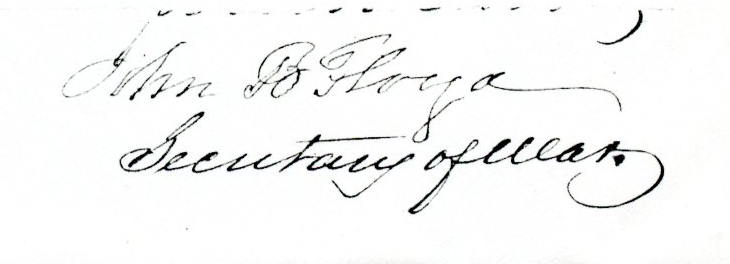 John B Floyd
Secretary of War.